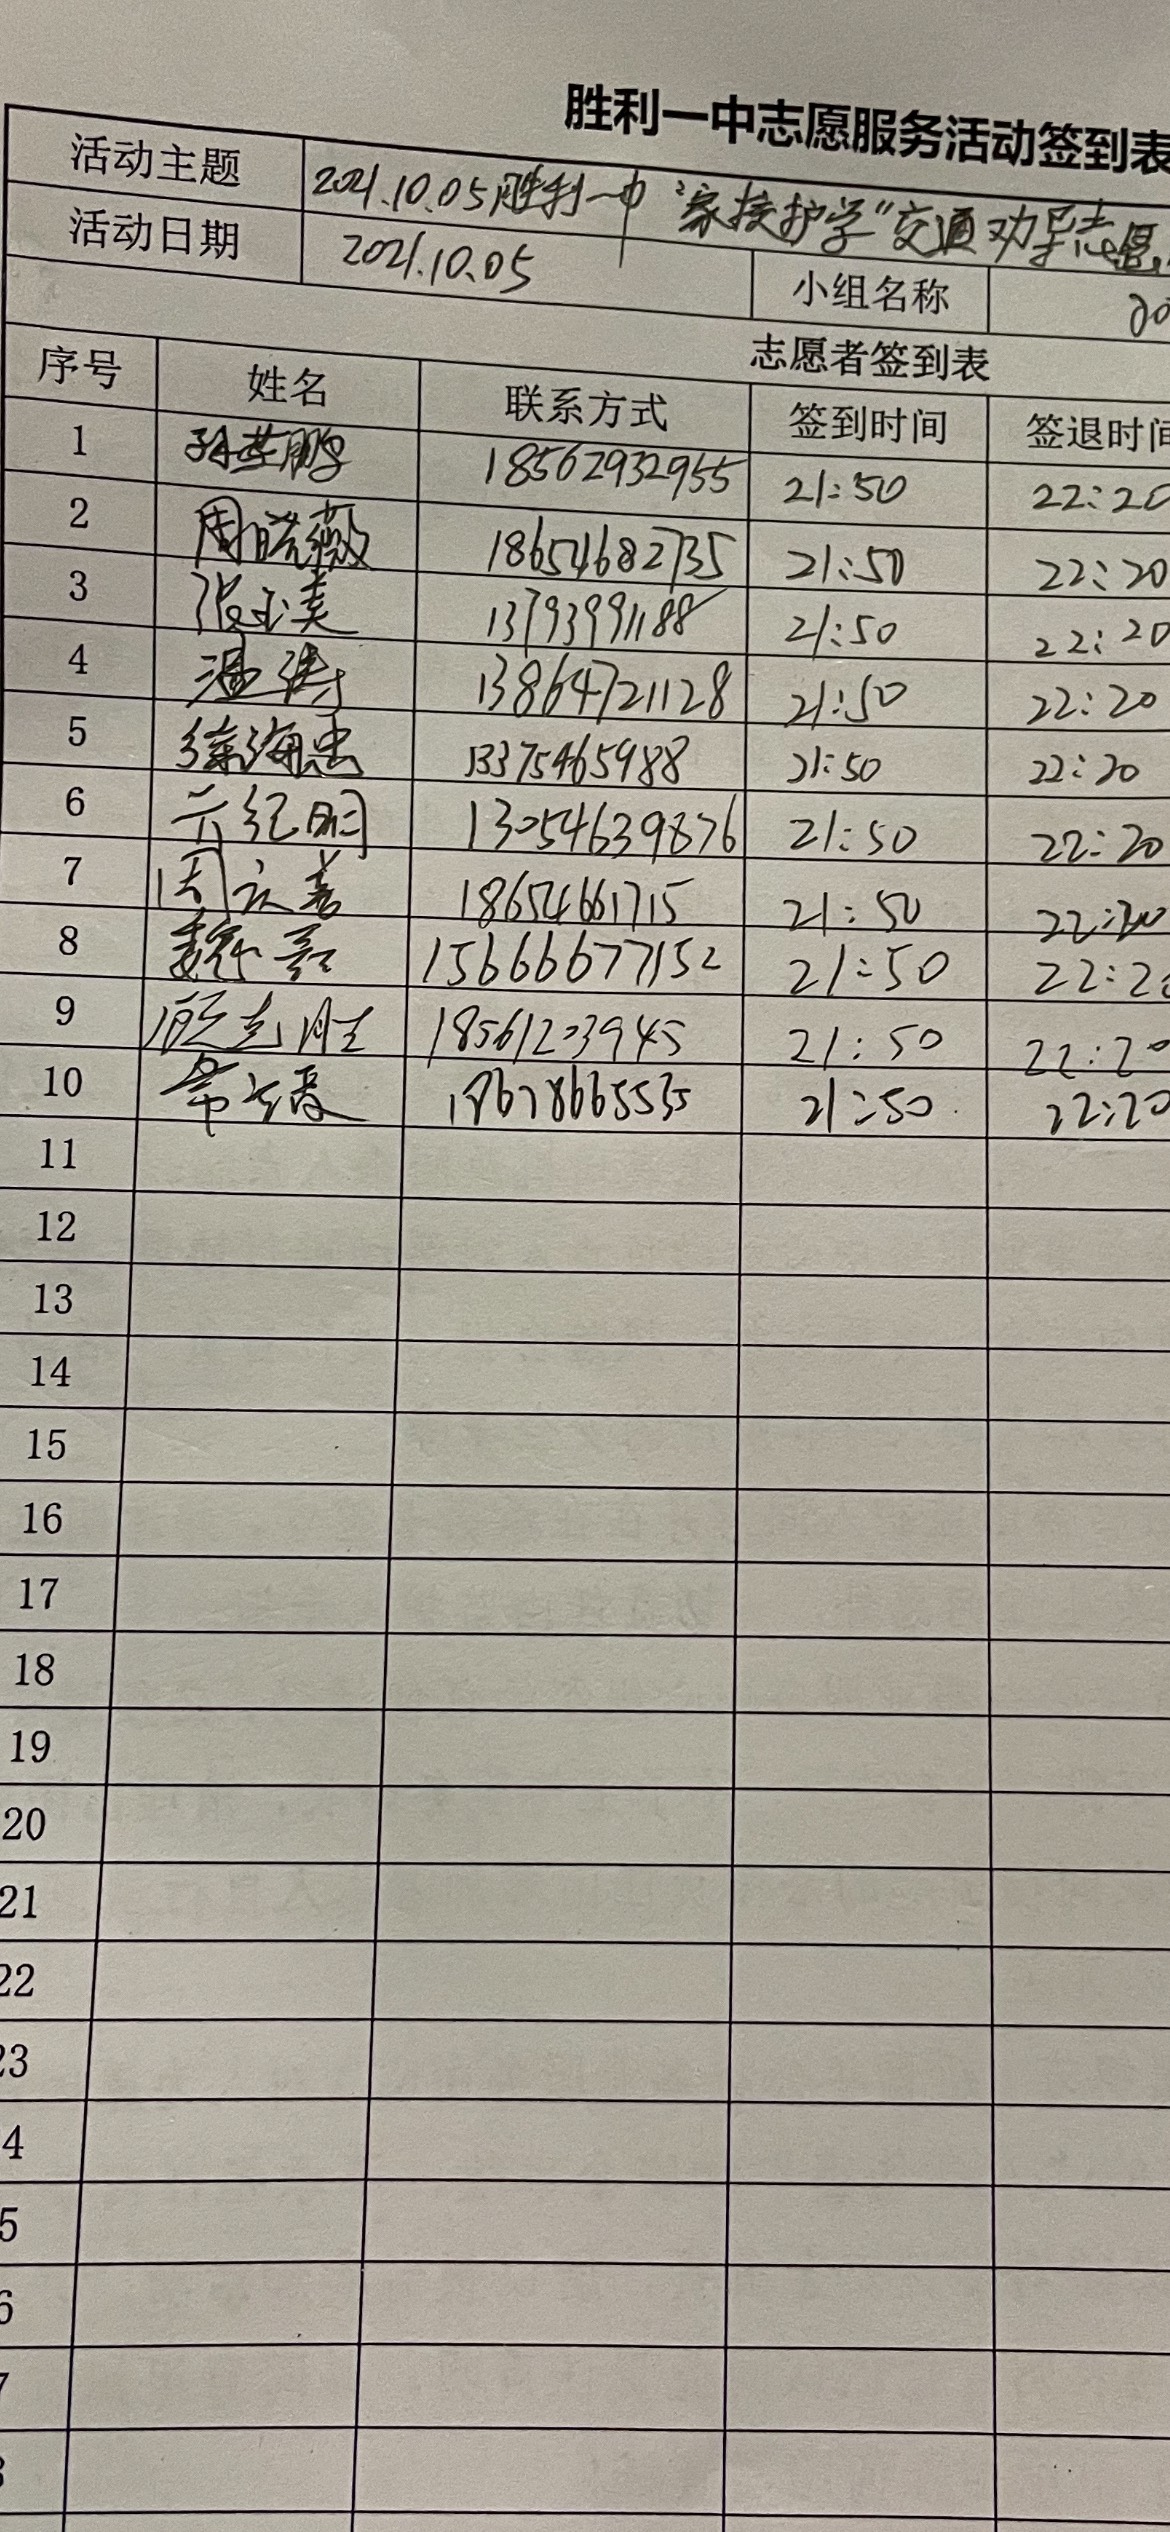 胜利一中志愿服务活动签到表
活动主题 2021.10.05胜利一中"家接护学"交通劝导志愿
活动日期 2021.10.05 小组名称 20
志愿者签到表
序号 姓名 联系方式 签到时间 签退时间
1 孙燕鹏 18562932955 21:50 22:20
2 周晓薇 18654682735 21:50 22:20
3 张玉美 13793991188 21:50 22:20
4 温涛 13864721128 21:50 22:20
5 徐海忠 13375465988 21:50 22:20
6 亓纪明 13054639876 21:50 22:20
7 周 18654661715 21:50 22:20
8 魏 15666677152 21:50 22:20
9 顾克胜 18561203945 21:50 22:20
10 18678665555 21:50 22:20
11
12
13
14
15
16
17
18
19
20
21
22
23
4
5
6
7